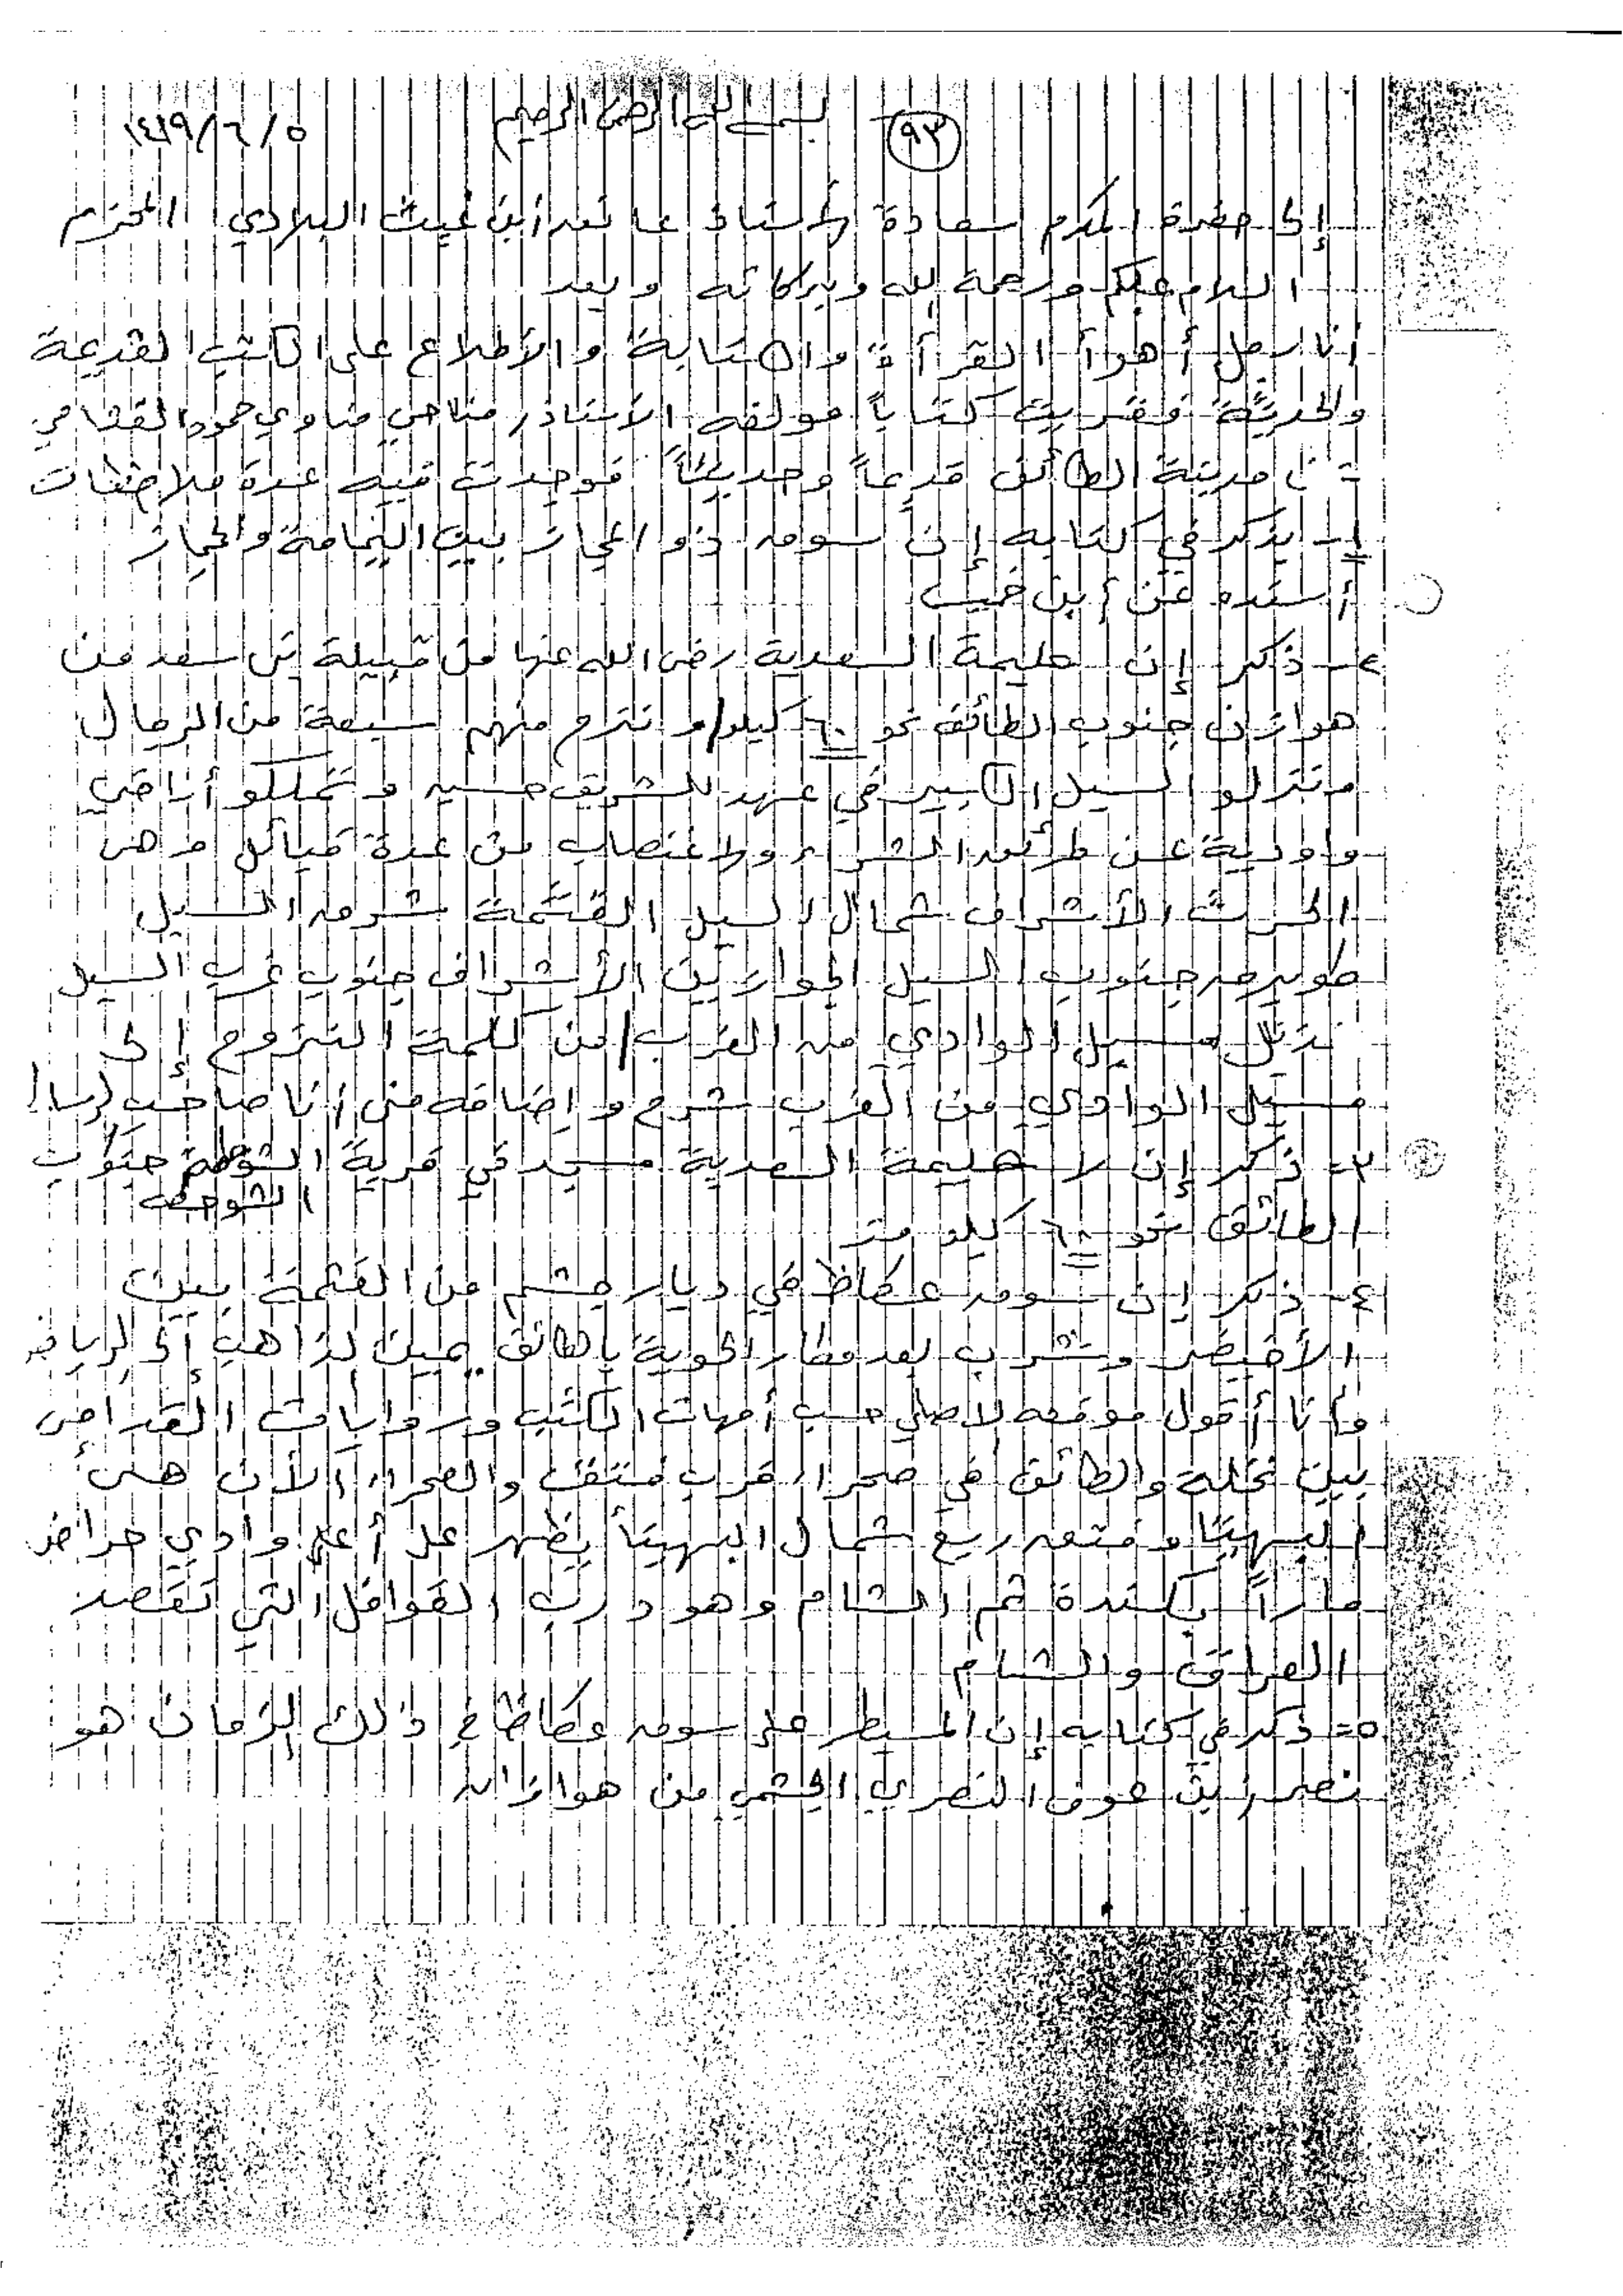 بسم الله الرحمن الرحيم
٩٣
١٤١٩/٦/٥
إلى حضرة المكرم سعادة الأستاذ عاتق ابن غيث البلادي المحترم
السلام عليكم ورحمة الله وبركاته وبعد
أنا رجل أهوأ القرأة والكتابة والأطلاع على الكتب القديمة
والحديثة فقريت كتاباً مولفه الأستاذ مناحي ضاوي حمود القثامي
عن مدينة الطائف قديماً وحديثاً فوجدت فيه عدة ملاحظات
١- يذكر في كتابه إن سوق ذو المجاز بين اليمامة والحجاز
أسنده عن أبن خميس
٢- ذكر إن حليمة السعدية رضي الله عنها من قبيلة بني سعد من
هوازن جنوب الطائف نحو ٦٠ كيلو / و نزح منهم سبعة من الرجال
ونزلو السيل الكبير في عهد الشريف حسين وتملكو أراضي
واودية عن طريق الشراء والاغتصاب من عدة قبائل وهي
الحرث الأشراف شمال السيل القثمة شرق السيل
طويرق جنوب السيل الجوازين الأشراف جنوب غرب السيل
مسيل الوادي من الغرب / من كلمة النزوح إلى
مسيل الوادي من الغرب شرح واضافه مني أنا صاحب الرسالة
٣- ذكر إن لا حليمة السعدية مسجد في قرية الشوحطة جنوب
الشوحطه
الطائف نحو ٦٠ كيلو متر
٤- ذكر إن سوق عكاظ في ديار جشم من القثمة بين
الأخيضر وشرب بعد مطار الحوية بالطائف يمين لذاهب إلى الرياض
وأنا أقول موقعه لاصلي حسب أمهات الكتب وروايات القدامى
بين نخلة والطائف في صحراء قرب فتق والصحراء الأن هي
البهيتا و فتق ريع شمال البهيتأ يظهر على أعلى وادي حراض
ماراً بكندة ثم الشام وهو درب القوافل التي تقصد
العراق والشام
٥- ذكر في كتابه إن المسيطر على سوق عكاظ في ذلك الزمان هو
نصر إبن عوف النصري الجشمي من هوازان